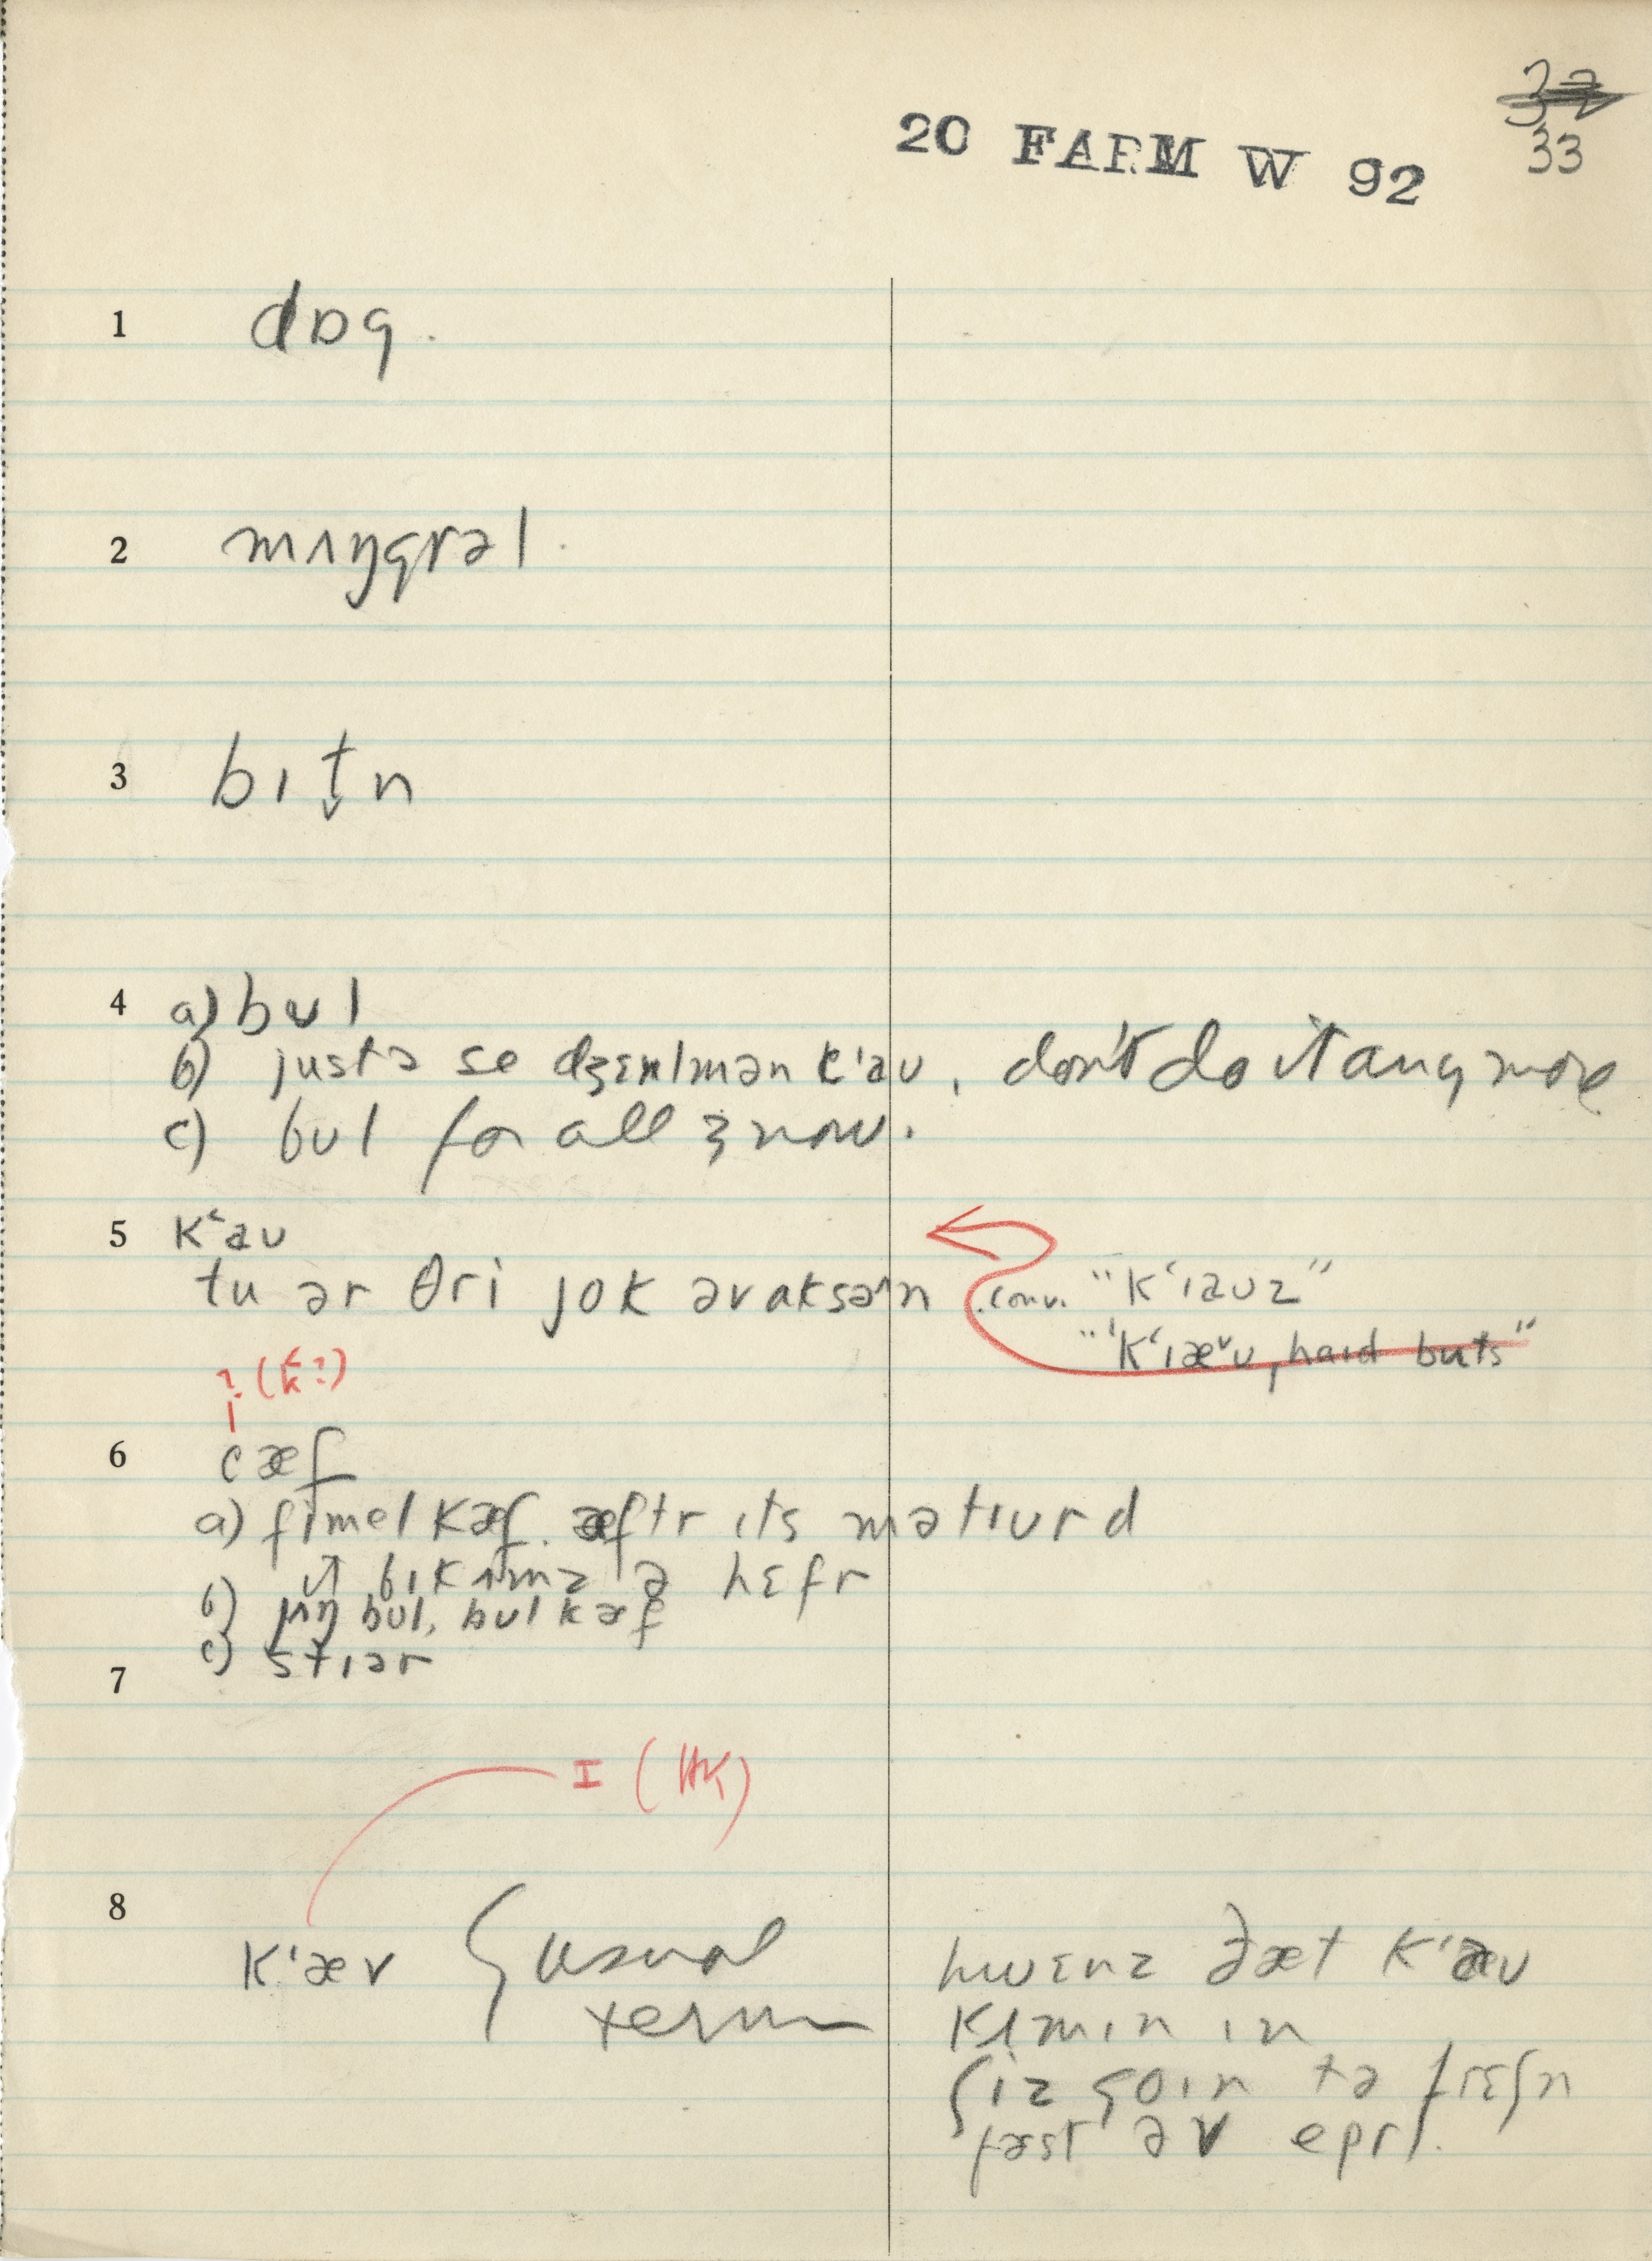 32
33
20 FARM W 92
1 dɒg.
2 mʌŋgrəl.
3 bɪt̬n
4 a) bʊl
b) justə se dʒɛnlmən k'aʊ, don't do it any more
c) bʊl for all & now.
5 k‘aʊ
tu ər θri jok əv aksən conv. "k‘ɪaʊz"
"'k‘ɪæᵛʊ, haɪd buts"
? (k‘?)
6 cæf
a) fimel kæf. æftr ɪts mətɪurd
ɪt bɪkʌmz ə hɛfr
b) jʌŋ bʊl, bʊl kæf
c) stɪər
7
I (HK)
8 k'æʊ { usual
term
hwɛnz ðæt k'æʊ
kʌmɪn ɪn
ʃiz goɪn tə frɛʃn
fəst əv eprl.